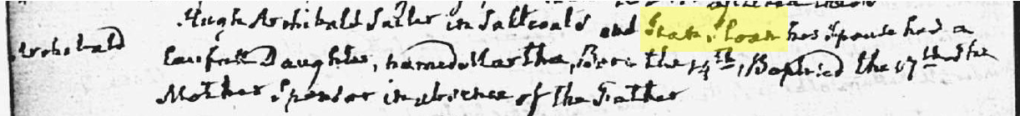 Hugh Archibald Sailer in Saltcoats and Jean Sloan his Spouse had a
Archibald
Lawfull Daughter, named Martha, Born the 14th, Baptised the 17th and the
Mother Sponsor in absence of the Father